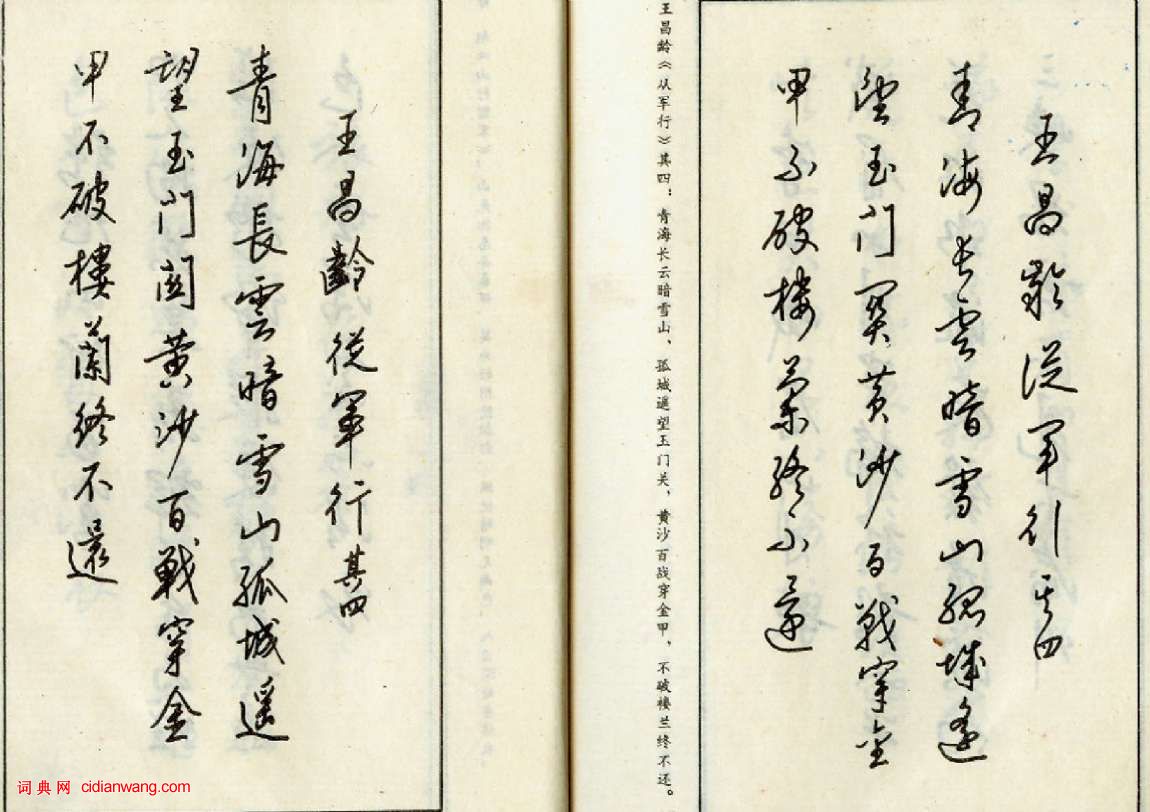 王昌齡從軍行其四
青海長雲暗雪山孤城遥
望玉門関黄沙百戰穿金
甲不破樓蘭終不還
王昌龄《从军行》其四：青海长云暗雪山、孤城遥望玉门关，黄沙百战穿金甲，不破楼兰终不还。
王昌齡從軍行其四
青海長雲暗雪山孤城遥
望玉門関黄沙百戰穿金
甲不破樓蘭終不還
词典网 cidianwang.com